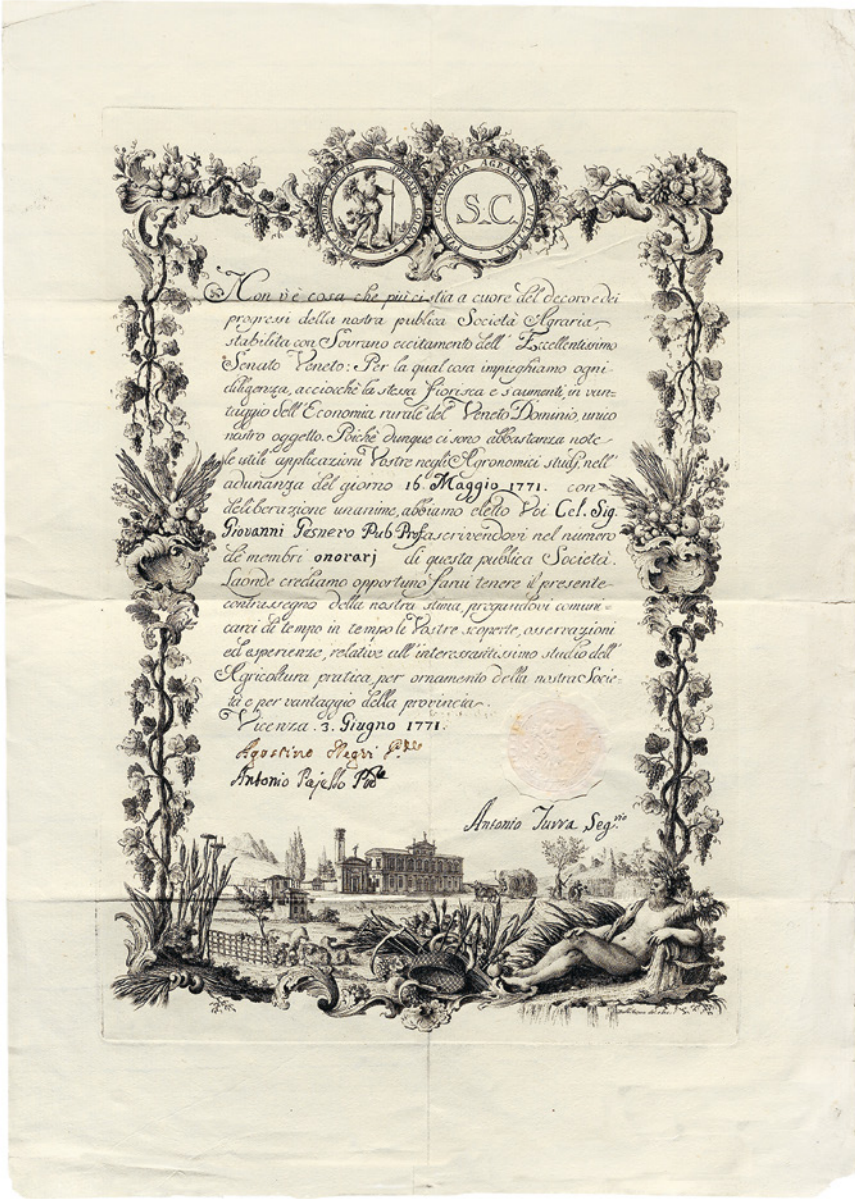 ACCADEMIA AGRARIA VICENTINA
S.C.
Non v'è cosa che più ci stia a cuore del decoro e dei
progressi della nostra publica Società Agraria,
stabilita con Sovrano eccitamento dell' Eccellentissimo
Senato Veneto: Per la qual cosa impieghiamo ogni
diligenza, acciocchè la stessa fiorisca e s'aumenti, in van=
taggio dell'Economia rurale del Veneto Dominio, unico
nostro oggetto. Poichè dunque ci sono abbastanza note
le utili applicazioni Vostre negli Agronomici studj, nell'
adunanza del giorno 16. Maggio 1771. con
deliberazione unanime, abbiamo eletto Voi Cel. Sig.
Giovanni Gesnero Pub. Prof. ascrivendovi nel numero
de' membri onorarj di questa publica Società.
Laonde crediamo opportuno farvi tenere il presente
contrassegno della nostra stima, pregandovi comuni=
carci di tempo in tempo le Vostre scoperte, osservazioni
ed esperienze, relative all'interessantissimo studio dell'
Agricoltura pratica, per ornamento della nostra Socie=
tà e per vantaggio della provincia.
Vicenza. 3. Giugno 1771.
Agostino Negri
Antonio Pajello
Antonio Turra Seg.rio